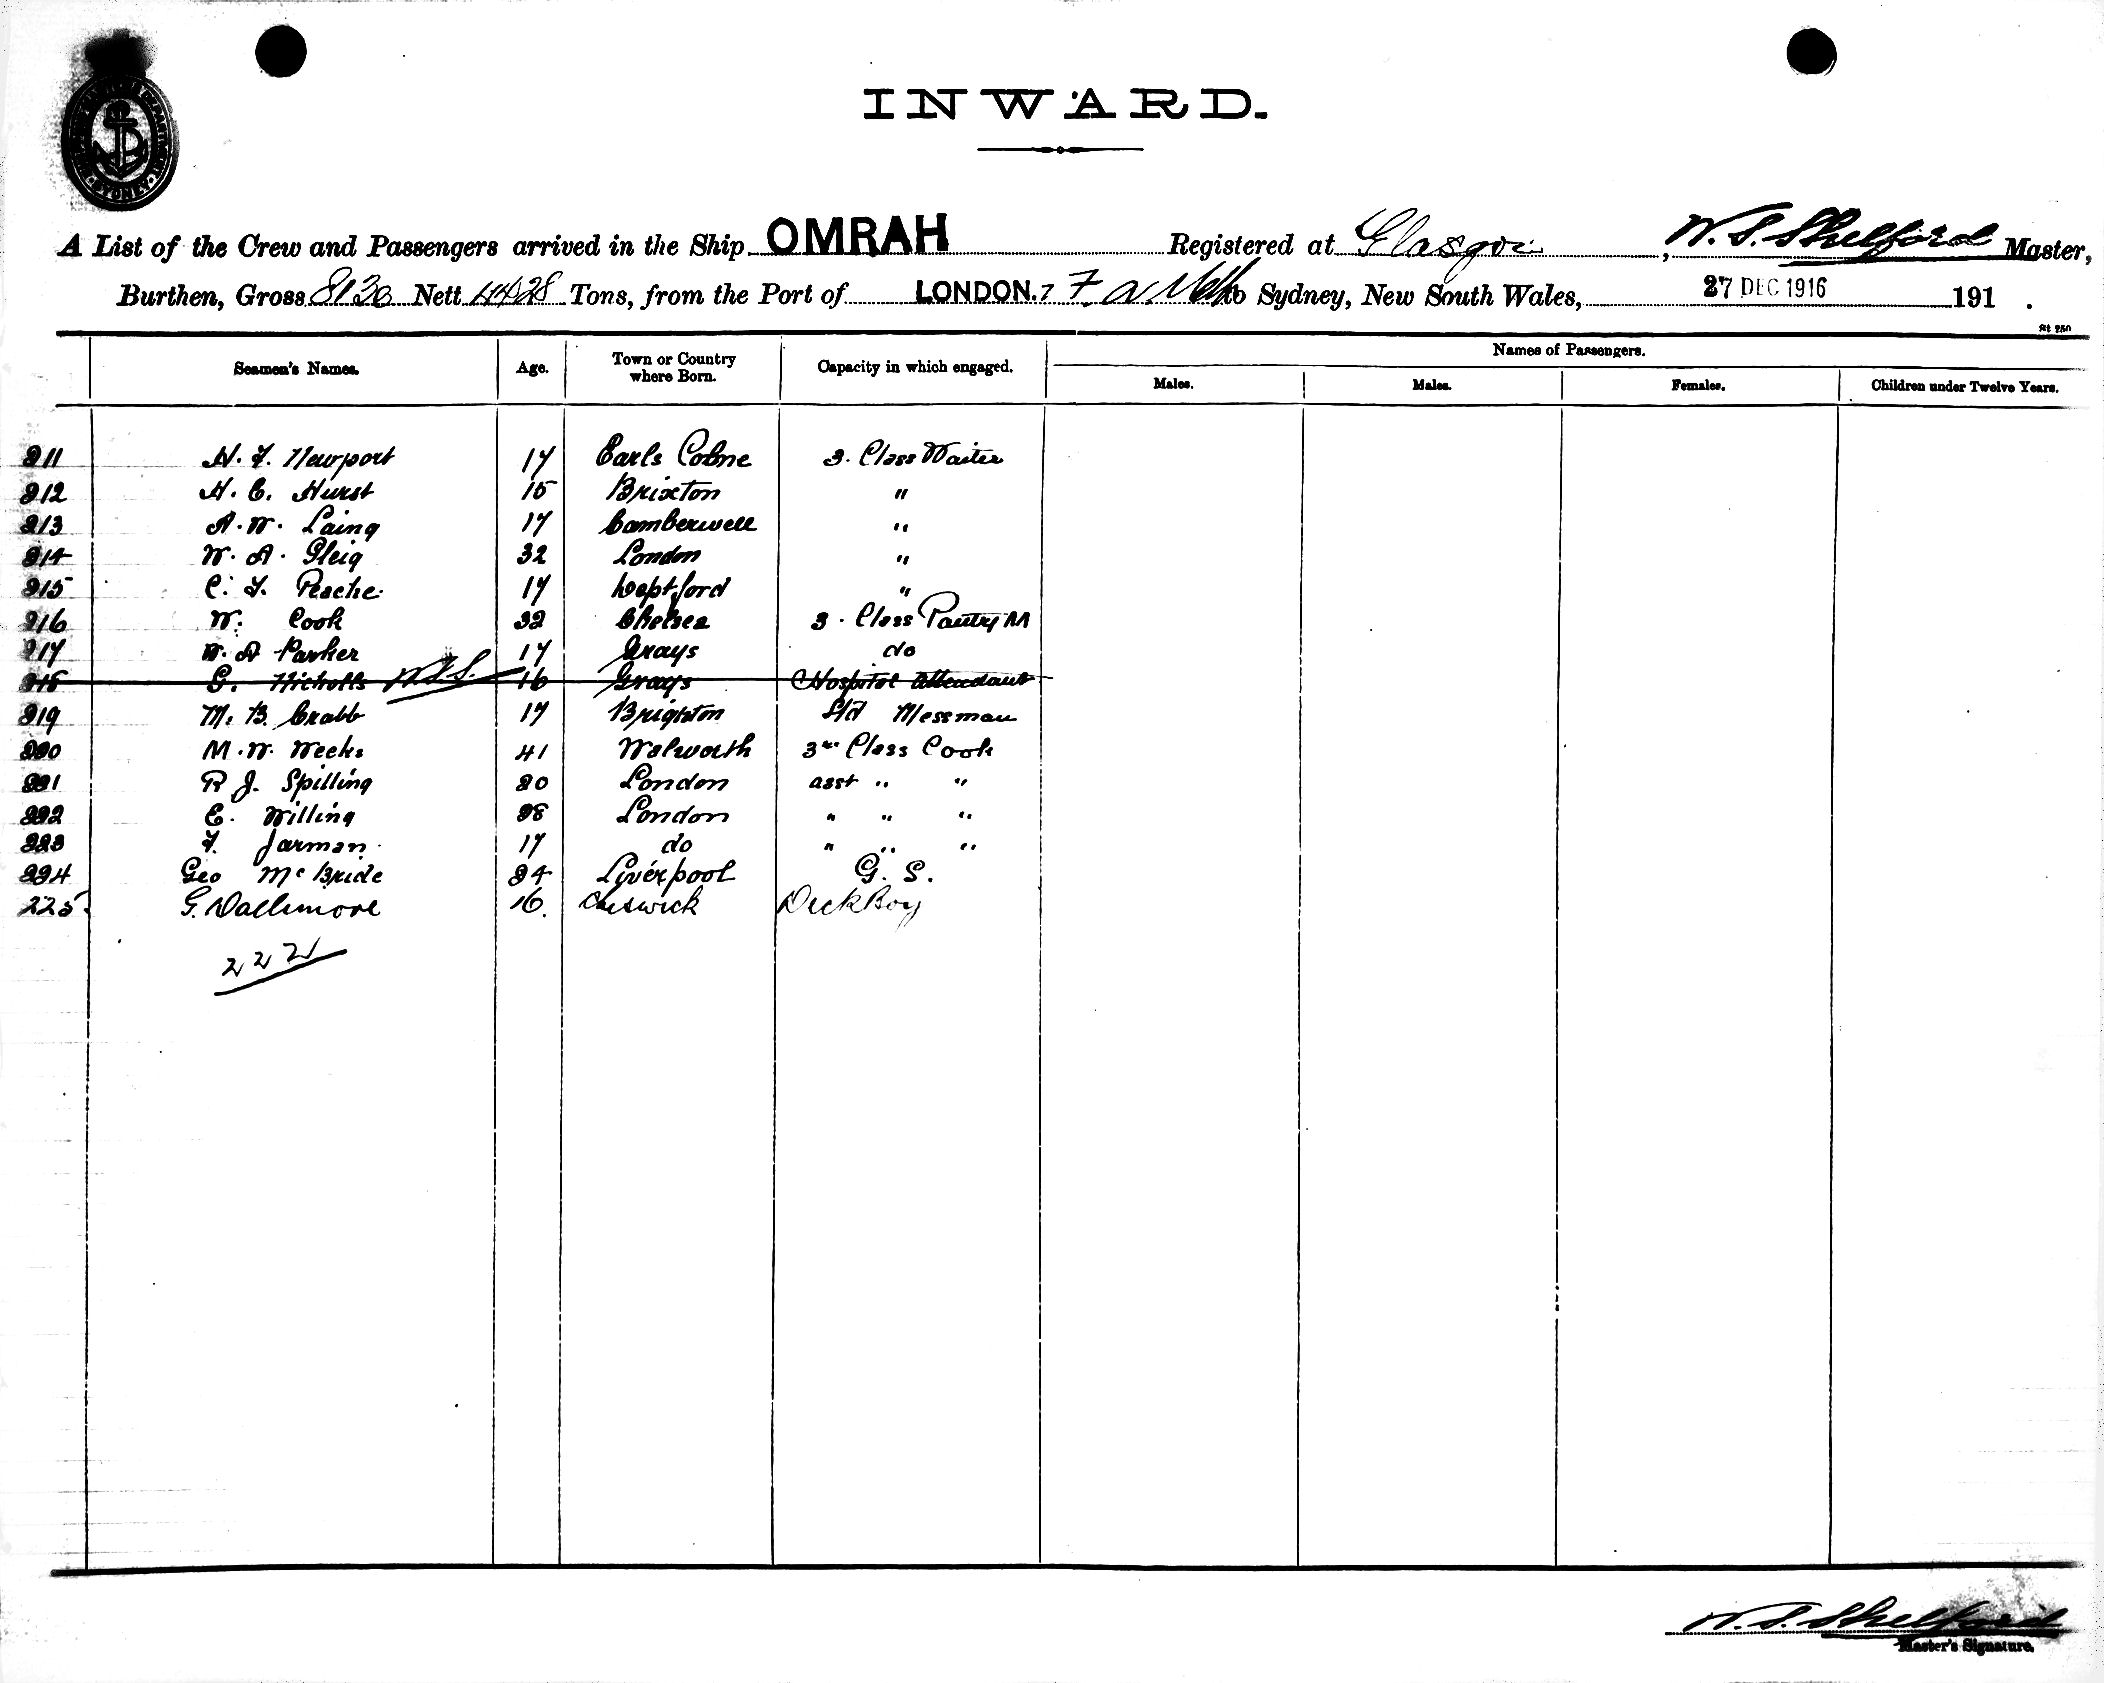 INWARD.
A List of the Crew and Passengers arrived in the Ship OMRAH Registered at Glasgow, W. S. Shelford Master,
Burthen, Gross 8130 Nett 4428 Tons, from the Port of LONDON. to Sydney, New South Wales, 27 DEC 1916 191 .
St 250
Seamen's Names. Age. Town or Country where Born. Capacity in which engaged. Names of Passengers.
Males. Males. Females. Children under Twelve Years.
211 H. F. Newport 17 Earls Colne 3. Class Waiter
212 H. C. Hurst 15 Brixton "
213 A. W. Laing 17 Camberwell "
214 W. A. Gleig 32 London "
215 C. F. Pesche 17 Deptford "
216 W. Cook 32 Chelsea 3. Class Pantry M
217 W. A Parker 17 Grays do
218 G. Nicholls W.S.S. 16 Grays Hospital Attendant
219 M. B. Crabb 17 Brighton Std Messman
220 M. W. Weeks 41 Walworth 3rd Class Cook
221 R J. Spilling 20 London asst " "
222 E. Willing 28 London " " "
223 F. Jarman 17 do " " "
224 Geo McBride 24 Liverpool G. S.
225. G. Dallimore 16. Chiswick Deck Boy
222
W. S. Shelford
Master's Signature.